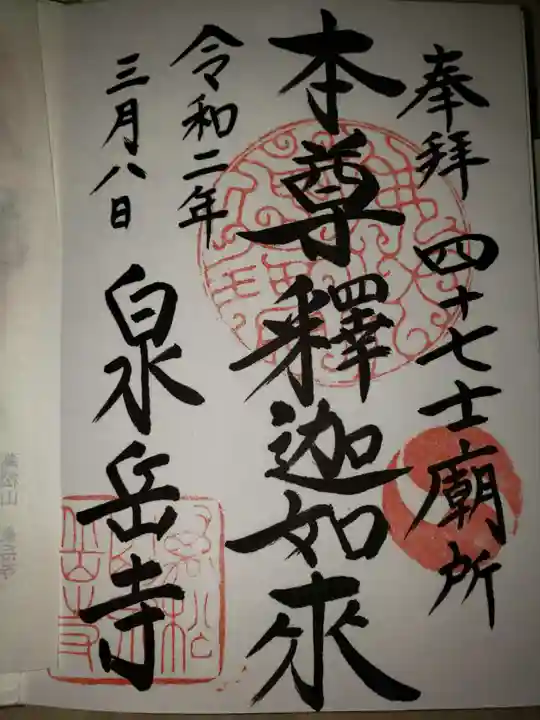 奉拝 四十七士廟所
本尊釋迦如來
令和二年
三月八日 泉岳寺